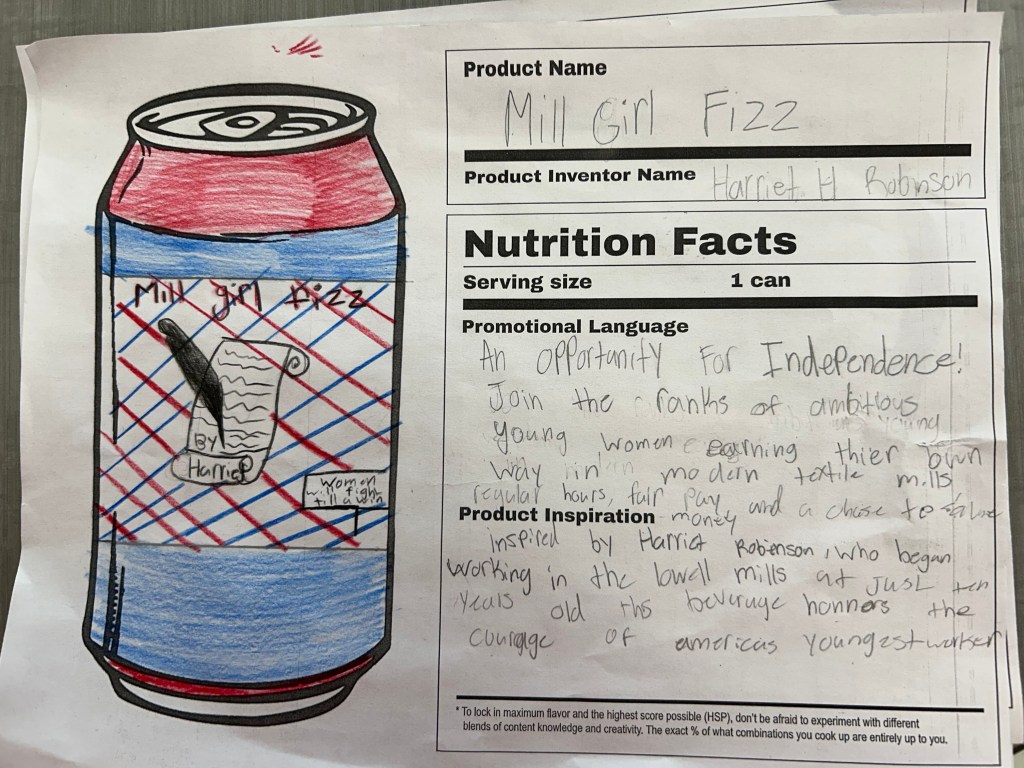 Mill girl Fizz
BY
Harriet
Women
will fight
till a win
Product Name
Mill Girl Fizz
Product Inventor Name Harriet H Robinson
Nutrition Facts
Serving size 1 can
Promotional Language
An opportunity for Independence!
Join the ranks of ambitious
young women earning thier own
way in modern textile mills
regular hours, fair pay and a chase to
money
Product Inspiration
inspired by Harriet Robinson, who began
working in the lowell mills at just ten
years old ths beverage honners the
courage of americas youngest worker
* To lock in maximum flavor and the highest score possible (HSP), don't be afraid to experiment with different
blends of content knowledge and creativity. The exact % of what combinations you cook up are entirely up to you.